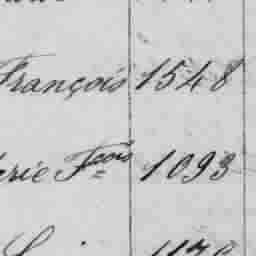 François 1548
erie Fçois 1093